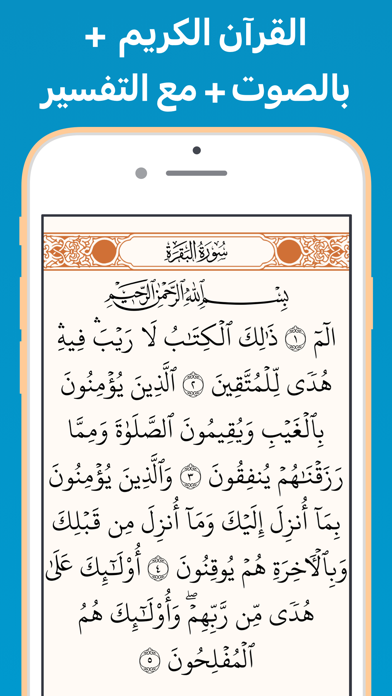 القرآن الكريم +
بالصوت + مع التفسير
سُورَةُ البَقَرَةِ
بِسْمِ ٱللَّهِ ٱلرَّحْمَٰنِ ٱلرَّحِيمِ
الٓمٓ ١ ذَٰلِكَ ٱلْكِتَٰبُ لَا رَيْبَۛ فِيهِۛ
هُدًى لِّلْمُتَّقِينَ ٢ ٱلَّذِينَ يُؤْمِنُونَ
بِٱلْغَيْبِ وَيُقِيمُونَ ٱلصَّلَوٰةَ وَمِمَّا
رَزَقْنَٰهُمْ يُنفِقُونَ ٣ وَٱلَّذِينَ يُؤْمِنُونَ
بِمَآ أُنزِلَ إِلَيْكَ وَمَآ أُنزِلَ مِن قَبْلِكَ
وَبِٱلْءَاخِرَةِ هُمْ يُوقِنُونَ ٤ أُو۟لَٰٓئِكَ عَلَىٰ
هُدًى مِّن رَّبِّهِمْۖ وَأُو۟لَٰٓئِكَ هُمُ
ٱلْمُفْلِحُونَ ٥